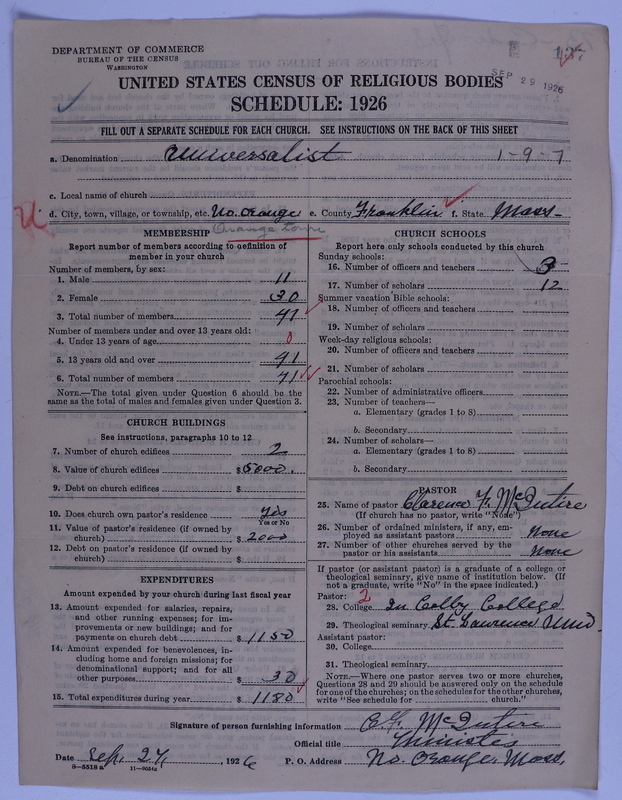 DEPARTMENT OF COMMERCE
BUREAU OF THE CENSUS
WASHINGTON
SEP 29 1926
UNITED STATES CENSUS OF RELIGIOUS BODIES
SCHEDULE: 1926
FILL OUT A SEPARATE SCHEDULE FOR EACH CHURCH. SEE INSTRUCTIONS ON THE BACK OF THIS SHEET
a. Denomination Universalist 1-9-7
c. Local name of church
d. City, town, village, or township, etc. No. Orange e. County Franklin f. State Mass-
Orange town
MEMBERSHIP
Report number of members according to definition of
member in your church
Number of members, by sex:
1. Male 11
2. Female 30
3. Total number of members 41
Number of members under and over 13 years old:
4. Under 13 years of age 0
5. 13 years old and over 41
6. Total number of members 41
NOTE.—The total given under Question 6 should be
same as the total of males and females given under Question 3.
CHURCH BUILDINGS
See instructions, paragraphs 10 to 12
7. Number of church edifices 2
8. Value of church edifices $5000.
9. Debt on church edifices $
10. Does church own pastor's residence yes
Yes or No
11. Value of pastor's residence (if owned by
church) $2000
12. Debt on pastor's residence (if owned by
church) $
EXPENDITURES
Amount expended by your church during last fiscal year
13. Amount expended for salaries, repairs,
and other running expenses; for im-
provements or new buildings; and for
payments on church debt $1150
14. Amount expended for benevolences, in-
cluding home and foreign missions; for
denominational support; and for all
other purposes $30
15. Total expenditures during year $1180
CHURCH SCHOOLS
Report here only schools conducted by this church
Sunday schools:
16. Number of officers and teachers 3
17. Number of scholars 12
Summer vacation Bible schools:
18. Number of officers and teachers
19. Number of scholars
Week-day religious schools:
20. Number of officers and teachers
21. Number of scholars
Parochial schools:
22. Number of administrative officers
23. Number of teachers—
a. Elementary (grades 1 to 8)
b. Secondary
24. Number of scholars—
a. Elementary (grades 1 to 8)
b. Secondary
PASTOR
25. Name of pastor Clarence F. McIntire
(If church has no pastor, write "None")
26. Number of ordained ministers, if any, em-
ployed as assistant pastors None
27. Number of other churches served by the
pastor or his assistants None
If pastor (or assistant pastor) is a graduate of a college or
theological seminary, give name of institution below. (If
not a graduate, write "No" in the space indicated.)
Pastor: 2
28. College In Colby College
29. Theological seminary St. Lawrence Univ.
Assistant pastor:
30. College
31. Theological seminary
NOTE.—Where one pastor serves two or more churches,
Questions 28 and 29 should be answered only on the schedule
for one of the churches; on the schedules for the other churches,
write "See schedule for church."
Signature of person furnishing information C. F. McIntire
Official title Minister
Date Sep. 27, 1926 P. O. Address No. Orange, Mass.
8-5518 a